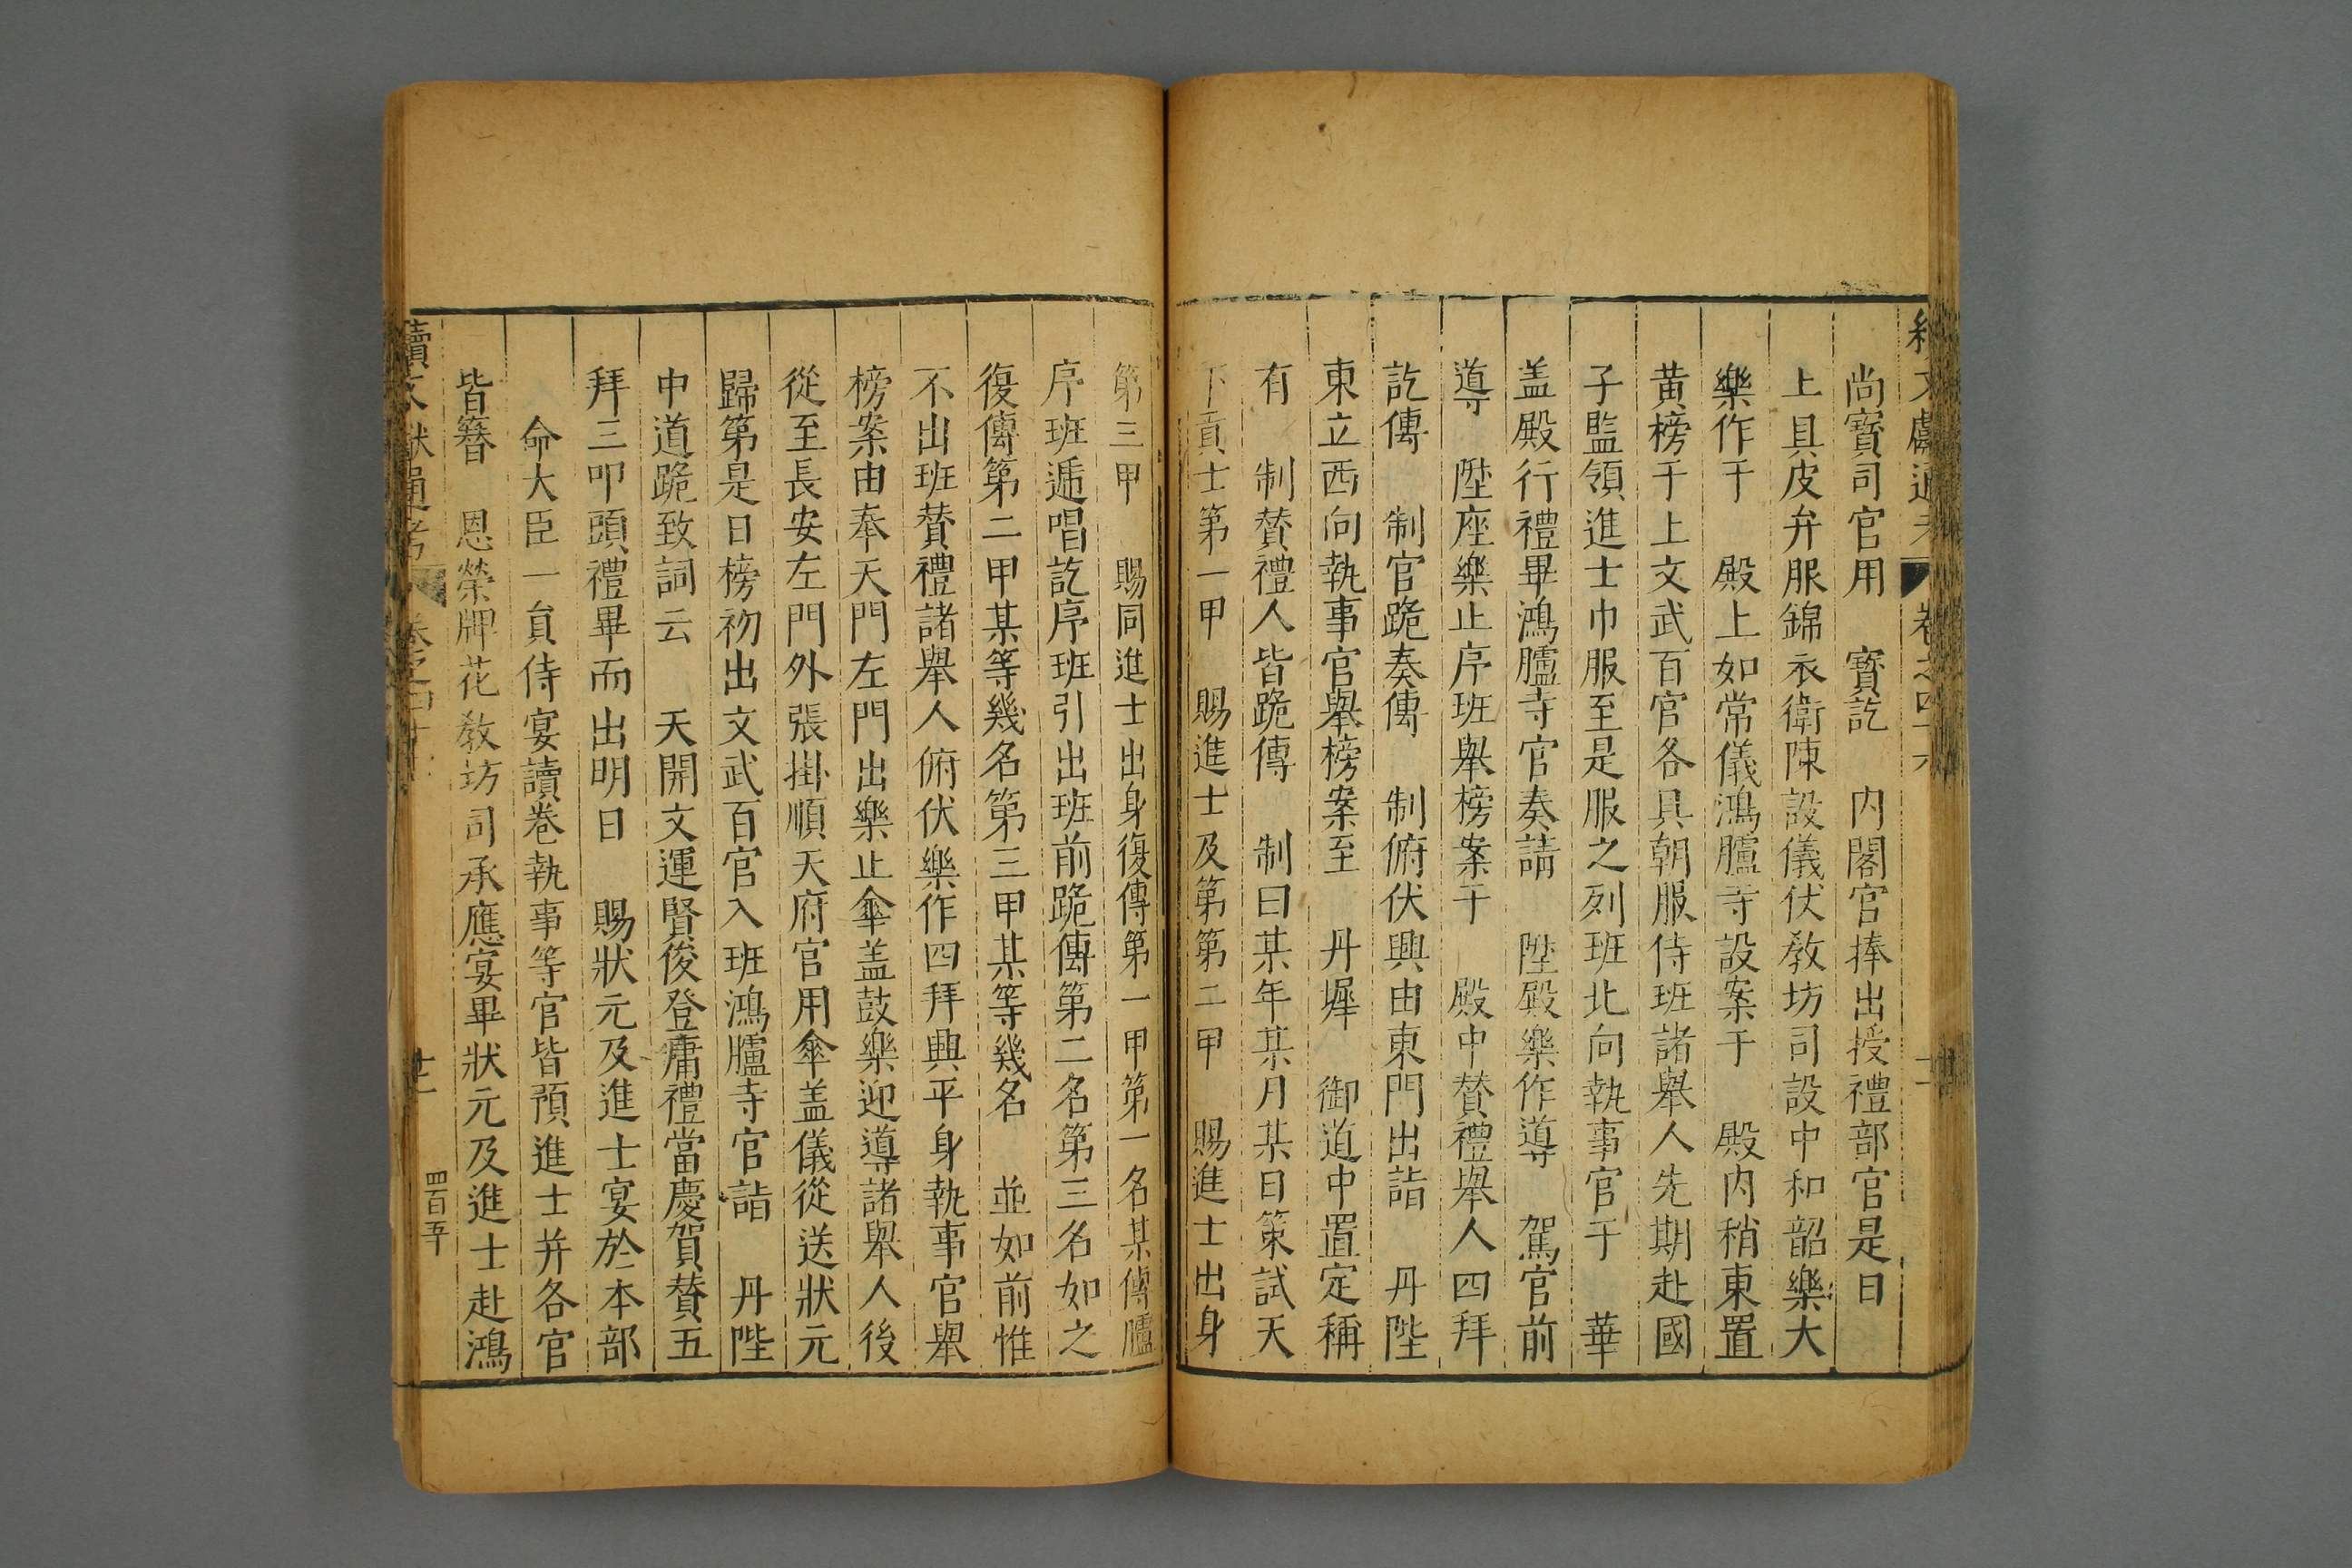 文獻通考 卷之四十六
尚寶司官用 寳訖 内閣官捧出授禮部官是日
上具皮弁服錦衣衛陳設儀仗教坊司設中和韶樂大
樂作于 殿上如常儀鴻臚寺設案于 殿内稍東置
黄榜于上文武百官各具朝服侍班諸舉人先期赴國
子監領進士巾服至是服之列班北向執事官于 華
盖殿行禮畢鴻臚寺官奏請 陞殿樂作導 駕官前
導 陞座樂止序班舉榜案于 殿中賛禮舉人四拜
訖傳 制官跪奏傳 制俯伏興由東門出詣 丹陛
東立西向執事官舉榜案至 丹墀 御道中置定稱
有 制賛禮人皆跪傳 制曰某年某月某日策試天
下貢士第一甲 賜進士及第第二甲 賜進士出身
第三甲 賜同進士出身復傳第一甲第一名某傳臚
序班逓唱訖序班引出班前跪傳第二名第三名如之
復傳第二甲某等幾名第三甲某等幾名 並如前惟
不出班賛禮諸舉人俯伏樂作四拜興平身執事官舉
榜案由奉天門左門出樂止傘盖鼓樂迎導諸舉人後
從至長安左門外張掛順天府官用傘盖儀從送狀元
歸第是日榜初出文武百官入班鴻臚寺官詣 丹陛
中道跪致詞云 天開文運賢俊登庸禮當慶賀賛五
拜三叩頭禮畢而出明日 賜狀元及進士宴於本部
命大臣一員侍宴讀卷執事等官皆預進士并各官
皆簪 恩榮牌花教坊司承應宴畢狀元及進士赴鴻
續文獻通考 卷之四十 十一 四百五